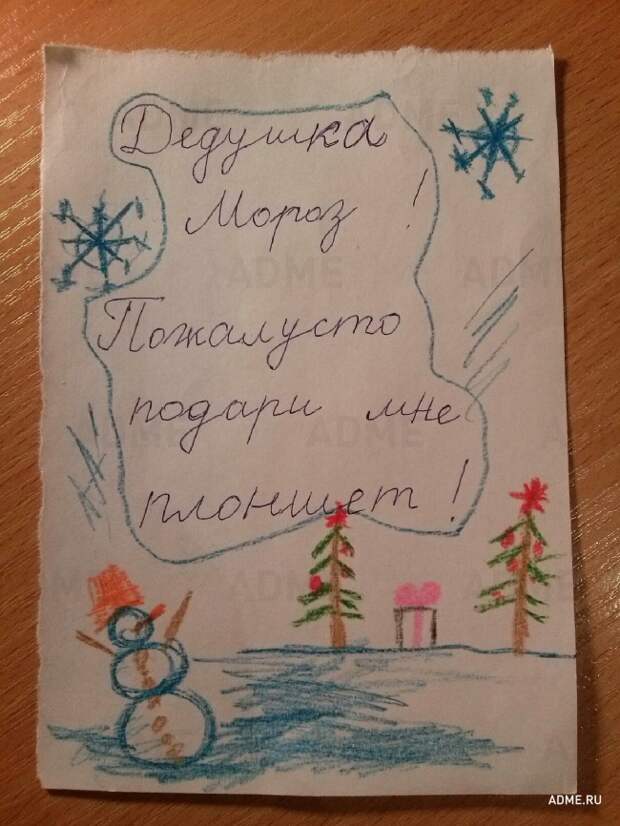 Дедушка
Мороз !
Пожалусто
подари мне
плоншет !
ADME.RU